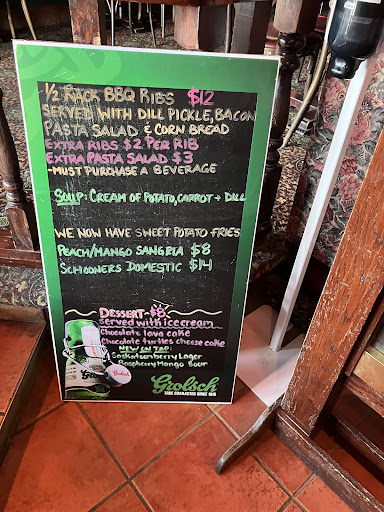 1/2 RACK BBQ RIBS $12
SERVED WITH DILL PICKLE, BACON
PASTA SALAD & CORN BREAD
EXTRA RIBS $2 PER RIB
EXTRA PASTA SALAD $3
-MUST PURCHASE A BEVERAGE
SOUP: CREAM OF POTATO, CARROT + DILL
WE NOW HAVE SWEET POTATO FRIES
PEACH/MANGO SANGRIA $8
SCHOONERS DOMESTIC $14
DESSERT-$8
served with ice cream
Chocolate lava cake
Chocolate turtles cheese cake
NEW ON TAP:
Saskatoonberry Lager
Raspberry Mango Sour
Grolsch
TRUE CHARACTER SINCE 1615